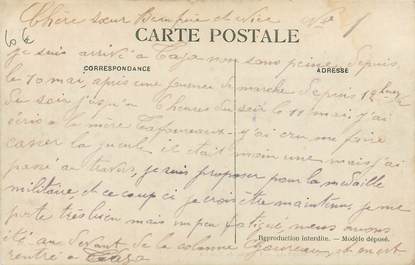 Chère sœur Beaufrère et Nièce No 1
60 €
CARTE POSTALE
je suis arrivé a Taza non sans peine depuis
CORRESPONDANCE ADRESSE
le 10 mai, après une journée de marche depuis 12 heures
du soir jusqu'a heures du soir le 11 mai j'ai
écris a la mère j'ai cru me faire
casser la gueule il etait moin une mais j'ai
passé au travers, je suis proposer pour la medaille
militaire, et ce coup ci je crois être maintenu, je me
porte très bien mais un peu fatigué, nous avons
Reproduction interdite. — Modèle déposé.
été au devant de la colonne Gouraud et on est
rentré a Taza